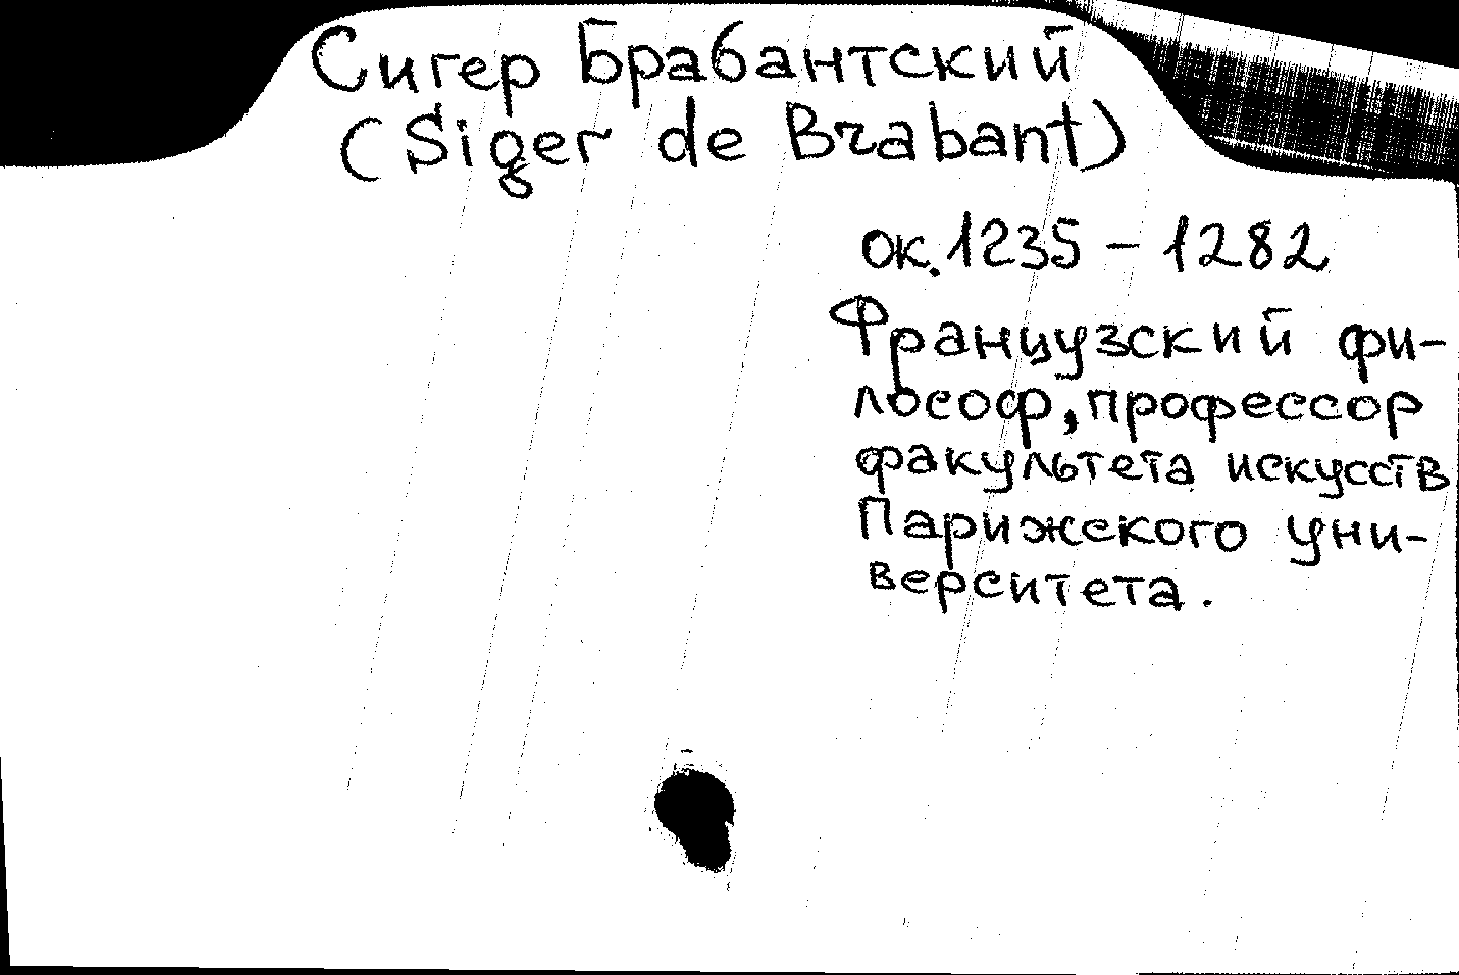 Сигер Брабантский
(Siger de Brabant)
ок. 1235 – 1282
Французский фи-
лософ, профессор
факультета искусств
Парижского уни-
верситета.